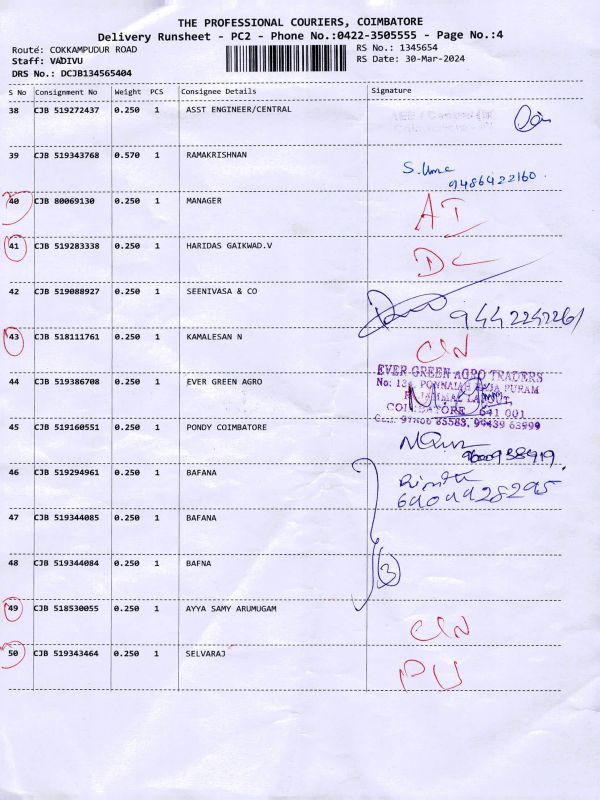 THE PROFESSIONAL COURIERS, COIMBATORE
Delivery Runsheet - PC2 - Phone No.:0422-3505555 - Page No.:4
Route: COKKAMPUDUR ROAD RS No.: 1345654
Staff: VADIVU RS Date: 30-Mar-2024
DRS No.: DCJB134565404
S No Consignment No Weight PCS Consignee Details Signature
38 CJB 519272437 0.250 1 ASST ENGINEER/CENTRAL
39 CJB 519343768 0.570 1 RAMAKRISHNAN
S. Uma
9486422160.
40 CJB 80069130 0.250 1 MANAGER AI
41 CJB 519283338 0.250 1 HARIDAS GAIKWAD.V DC
42 CJB 519088927 0.250 1 SEENIVASA & CO 9442242261
43 CJB 518111761 0.250 1 KAMALESAN N CN
44 CJB 519386708 0.250 1 EVER GREEN AGRO
EVER GREEN AGRO TRADERS
LAYOUT
COIMBATORE 641 001
45 CJB 519160551 0.250 1 PONDY COIMBATORE
46 CJB 519294961 0.250 1 BAFANA
47 CJB 519344085 0.250 1 BAFANA
48 CJB 519344084 0.250 1 BAFNA 3
49 CJB 518530055 0.250 1 AYYA SAMY ARUMUGAM CN
50 CJB 519343464 0.250 1 SELVARAJ PU